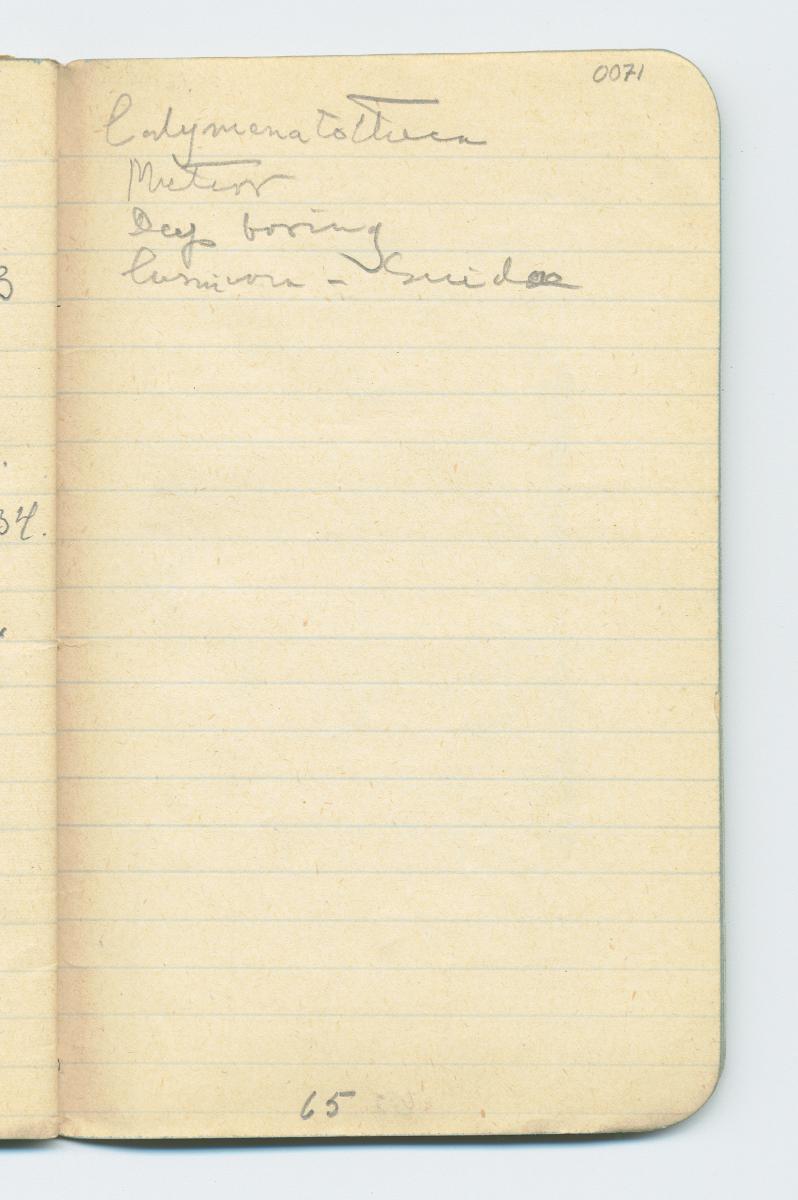 0071
Calymenatotheca
Meteor
Deep boring
Carnivora - Suidae
3
34.
65